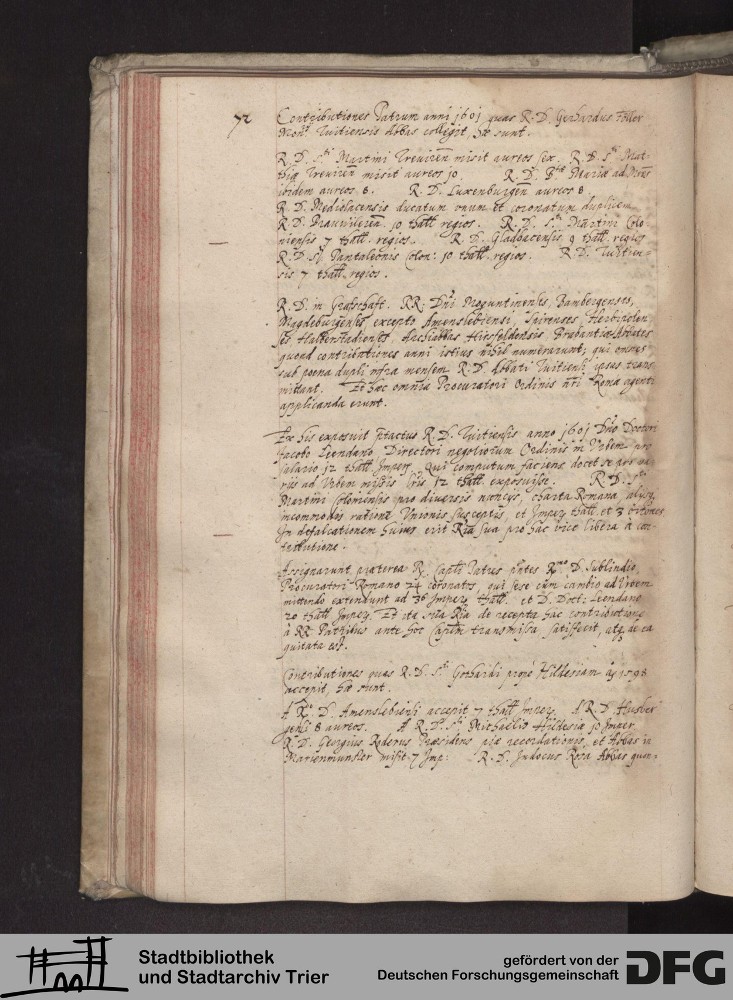 72 Contributiones Patrum anni 1601 quas R. D. Gerhardus Voller
Monrÿ Tuitiensis Abbas collegit, hæ sunt.
R. D. Sti Martini Treviren misit aureos sex. R. D. Sti Mat-
thiæ Treviren misit aureos 10. R. D. Btæ Mariæ ad Mres
ibidem aureos 8. R. D. Luxenburgen aureos 8.
R. D. Mediolacensis ducatum unum et coronatum duplicem
R. D. Brauwileren. 10 thall regios. R. D. Sti Martini Colo-
niensis 7 thall. regios. R. D. Gladbacensis 9 thall regios
R. D. Sti Pantaleonis Colon: 10 thall. regios. R. D. Tuitien-
sis 7 thall. regios.
R. D. in Grafschaft. RR: Dni Moguntinenses, Bambergenses,
Magdeburgenses excepto Amenslebiensi, Spirenses Herbipolen
ses Halberstadienses, Archiabbas Hirsfeldensis, Brabantiæ Abbates
quoad contributiones anni istius nihil numerarunt; qui omnes
sub poena dupli infra mensem R. D. Abbati Tuitiensi ipsas trans
mittant. Et hæc omnia Procuratori Ordinis nri Romæ agenti
applicanda erunt.
Ex his exposuit ptactus R. D. Tuitiensis anno 1601 Dno Doctori
Jacobo Leendano, Directori negotiorum Ordinis in Urbem pro
salario 12 thall Imper. qui computum faciens docet se pro va
rÿs ad Urbem missis lris 12 thall exposuisse. R. D. Sti
Martini Coloniensis pro diversis nuncÿs, charta Romana, alÿsq
incommodis ratione Unionis susceptis, et Imper thall et 3 Ortones
In defalcationem huius erit Rtia sua pro hac vice libera à con-
tributione.
Assignarunt præterea R. Capli Patres pntes Rmo D. Sublindio
Procuratori Romano 24 coronatos, qui sese cum cambio ad Urbem
mittendo extendunt ad 36 Imper thall. et D. Doct: Leendano
20 thall Imper. Et ita sua Rtia de recepta hac contributione
à RR Patribus ante hoc Caplm transmissa, satisfecit, atq; ac ea
quitata est.
Contributiones quas R. D. Sti Gothardi prope Hildesiam Aº 1598
accepit, hæ sunt.
A Rdo D. Amenslebiensi accepit 7 thall Imper. A R. D. Husber
gensi 8 aureos. A R. D. Sti Michaelis Hildesiæ 10 Imper
R. D. Georgius Roderus Præsidens piæ recordationis, et Abbas in
Marienmunster misit 7 Imp: R. D. Jodocus Rosa Abbas quon-
Stadtbibliothek
und Stadtarchiv Trier
gefördert von der
Deutschen Forschungsgemeinschaft
DFG